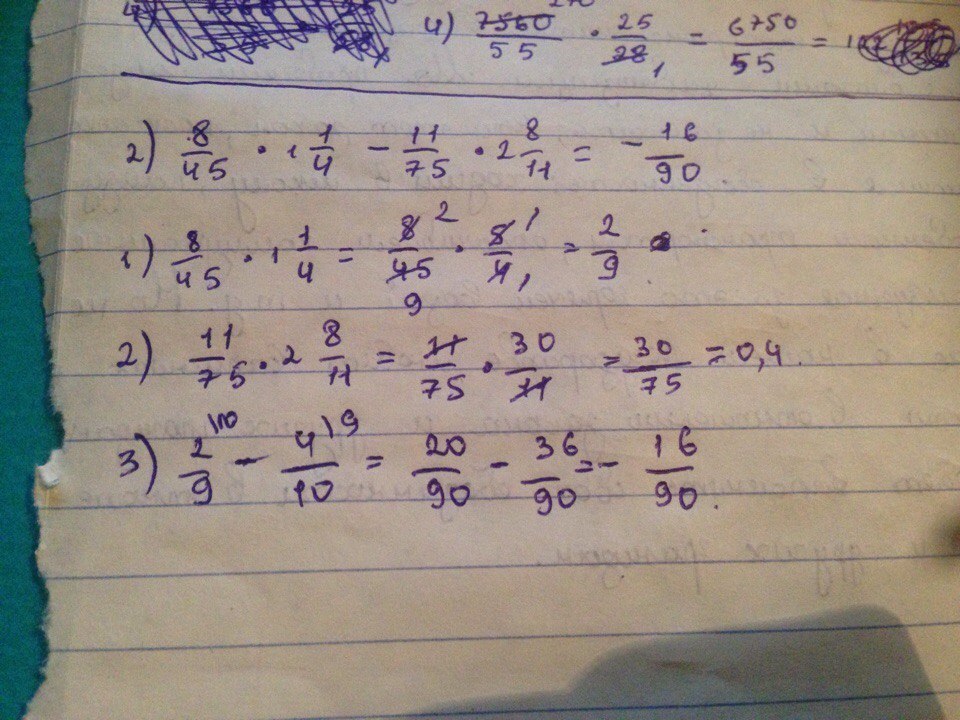 4) 7560/55 · 25/28 = 6750/55 =
270
1
2) 8/45 · 1 1/4 − 11/75 · 2 8/11 = − 16/90
1) 8/45 · 1 1/4 = 8/45 · 5/4 = 2/9
2 1
9 1
2) 11/75 · 2 8/11 = 11/75 · 30/11 = 30/75 = 0,4
3) 2/9 \10 − 4/10 \9 = 20/90 − 36/90 = − 16/90.